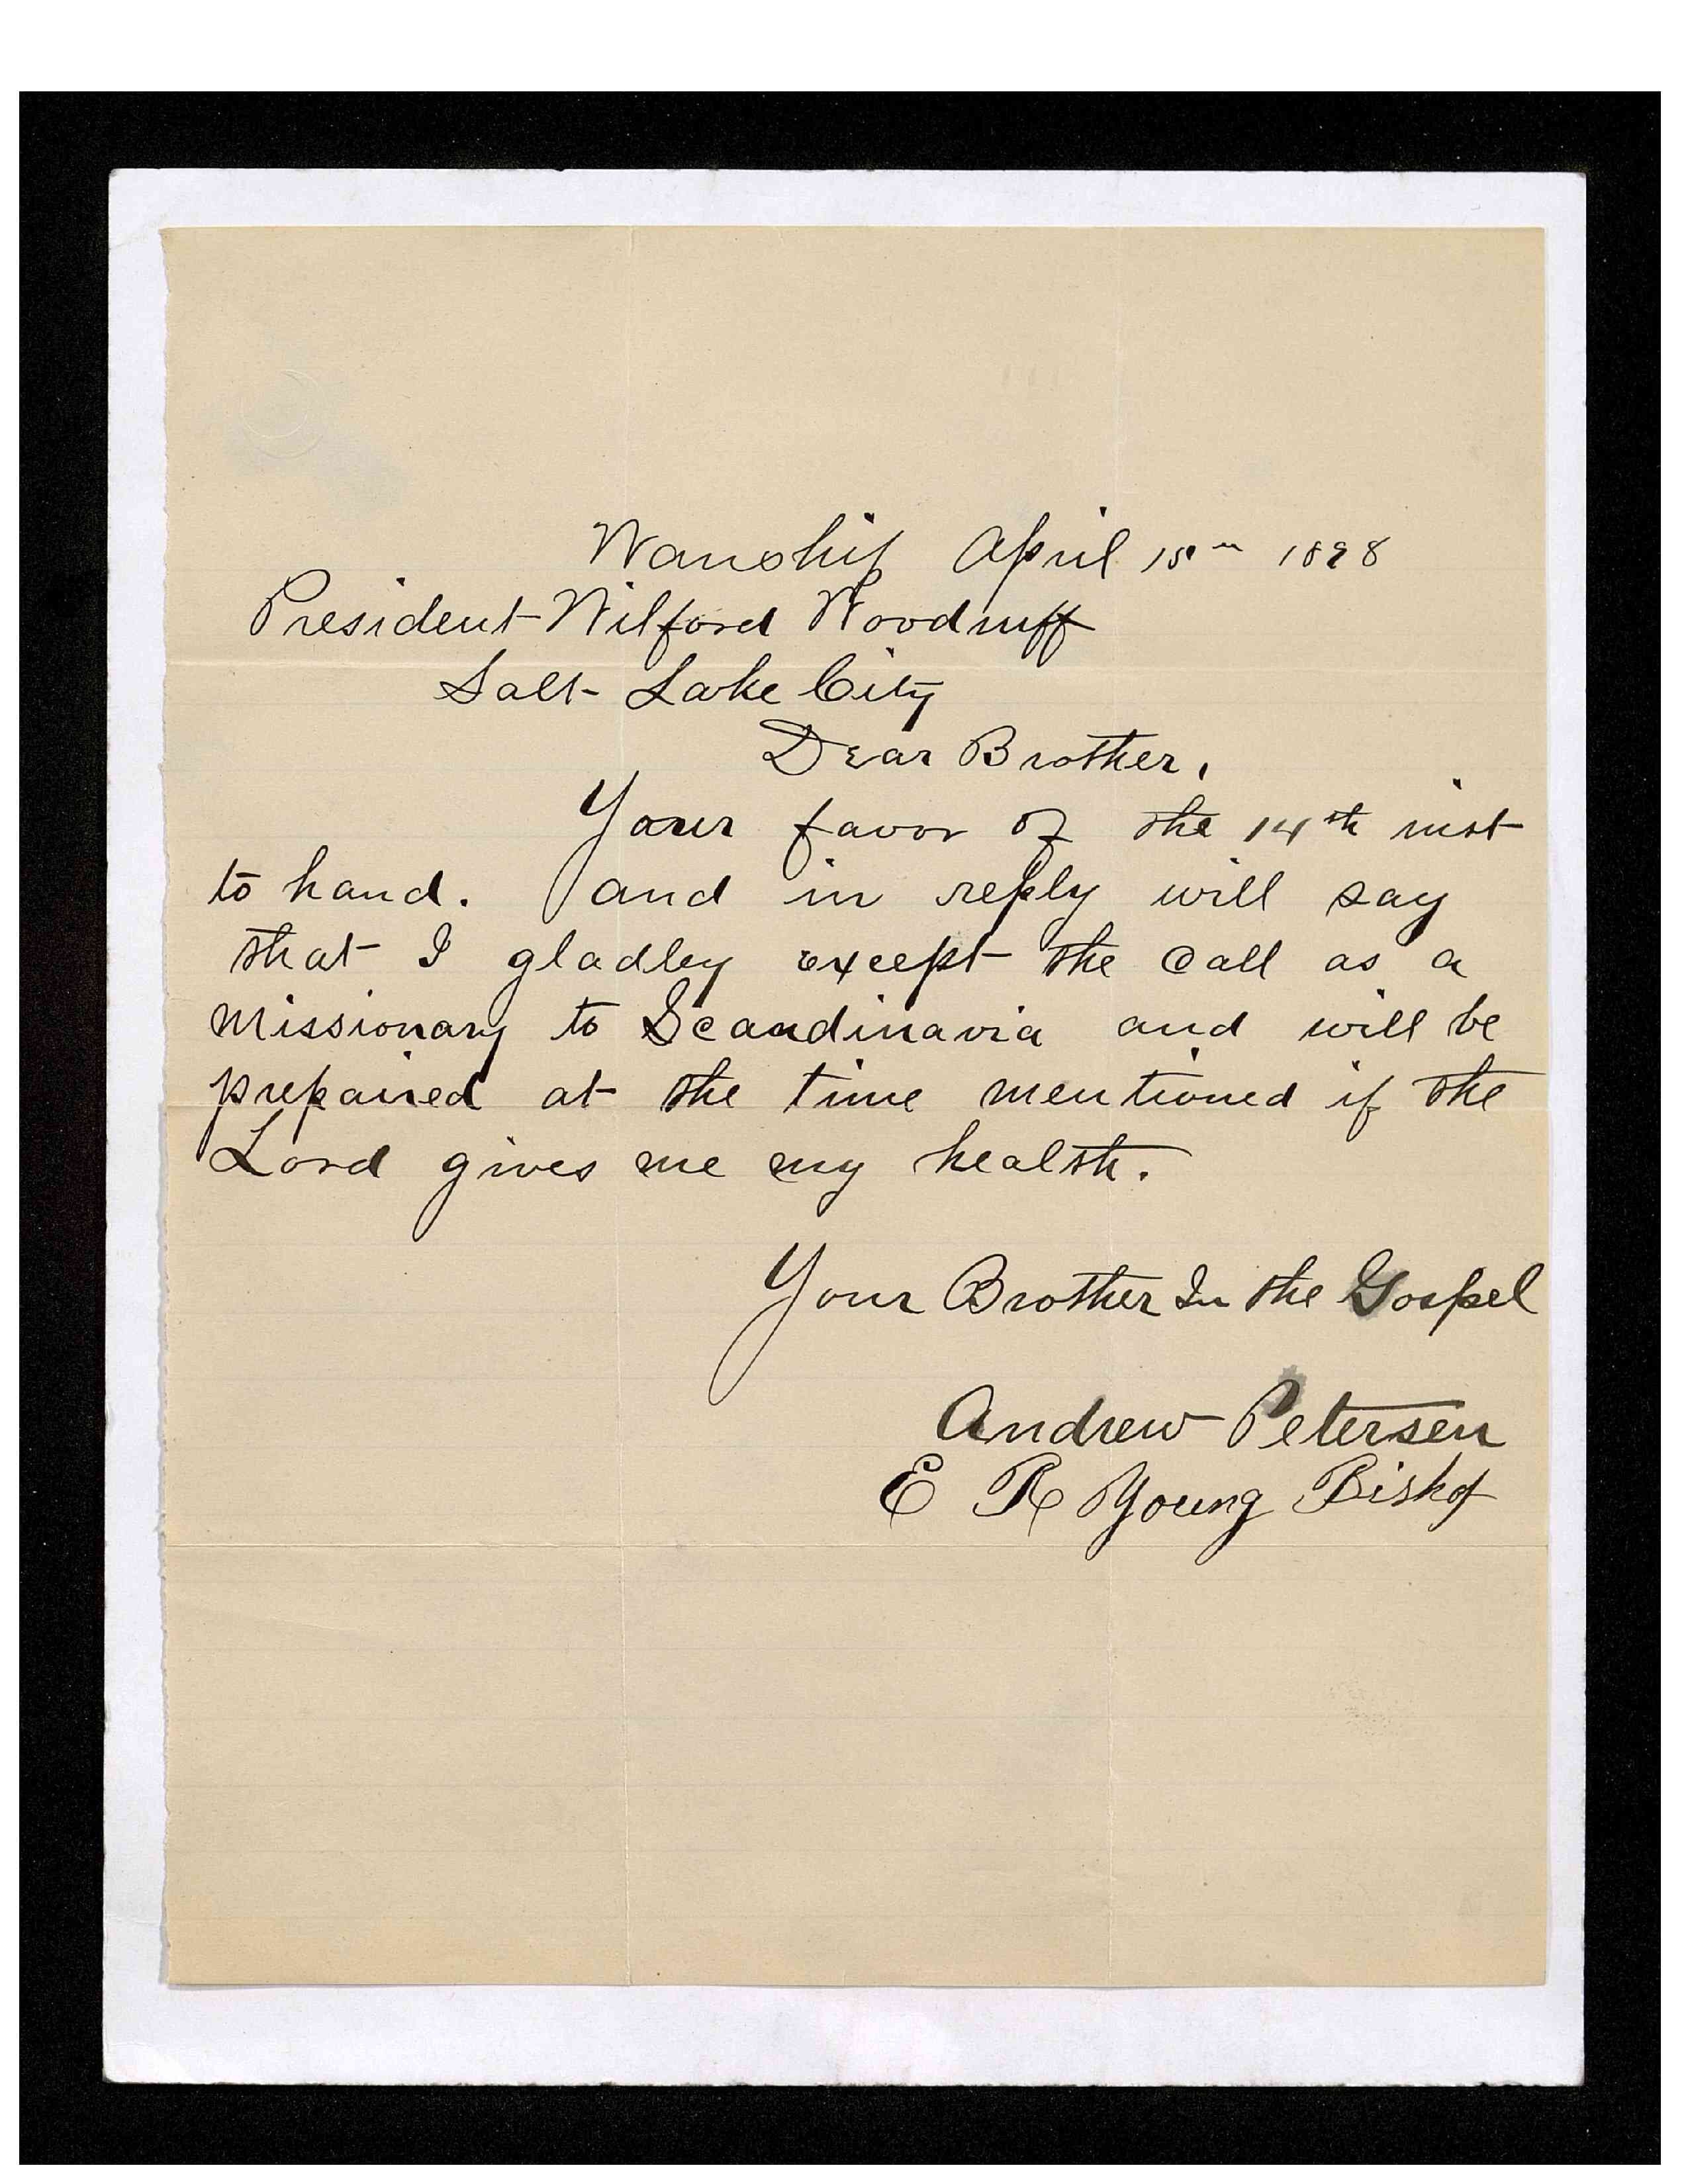 Wanship April 18th 1898
President Wilford Woodruff
Salt Lake City
Dear Brother,
Your favor of the 14th inst
to hand. and in reply will say
that I gladley except the call as a
missionary to Scandinavia and will be
prepaired at the time mentioned if the
Lord gives me my health.
Your Brother In the Gospel
Andrew Petersen
E R Young Bishop